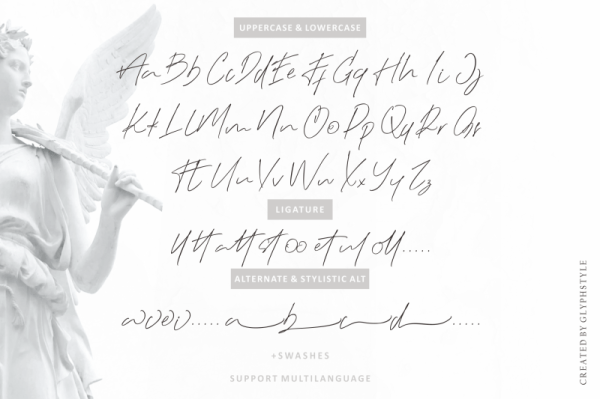 UPPERCASE & LOWERCASE
Aa Bb Cc Dd Ee Ff Gg Hh Ii Jj
Kk Ll Mm Nn Oo Pp Qq Rr Ss
Tt Uu Vv Ww Xx Yy Zz
LIGATURE
ALTERNATE & STYLISTIC ALT
+SWASHES
SUPPORT MULTILANGUAGE
CREATED BY GLYPHSTYLE